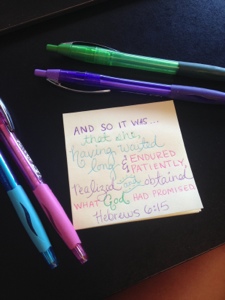 AND SO IT WAS...
that she,
having waited
long & ENDURED
PATIENTLY,
realized and obtained
WHAT God HAD PROMISED.
Hebrews 6:15